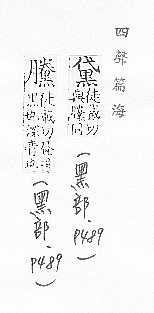 四聲篇海
黛徒戴切與黱同(黑部.P489)
黱徒戴切黑也深青也(黑部.P489)